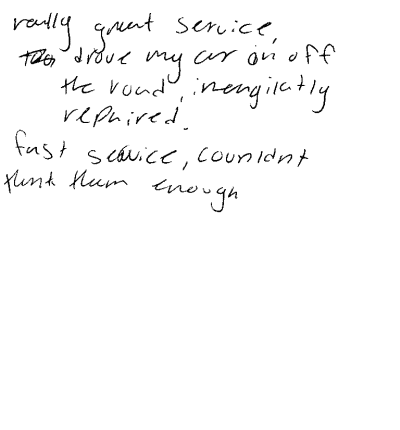 really great service,
drove my car on off
the road, inengilatly
repaired.
fast seavice, counldnt
thnk them enough